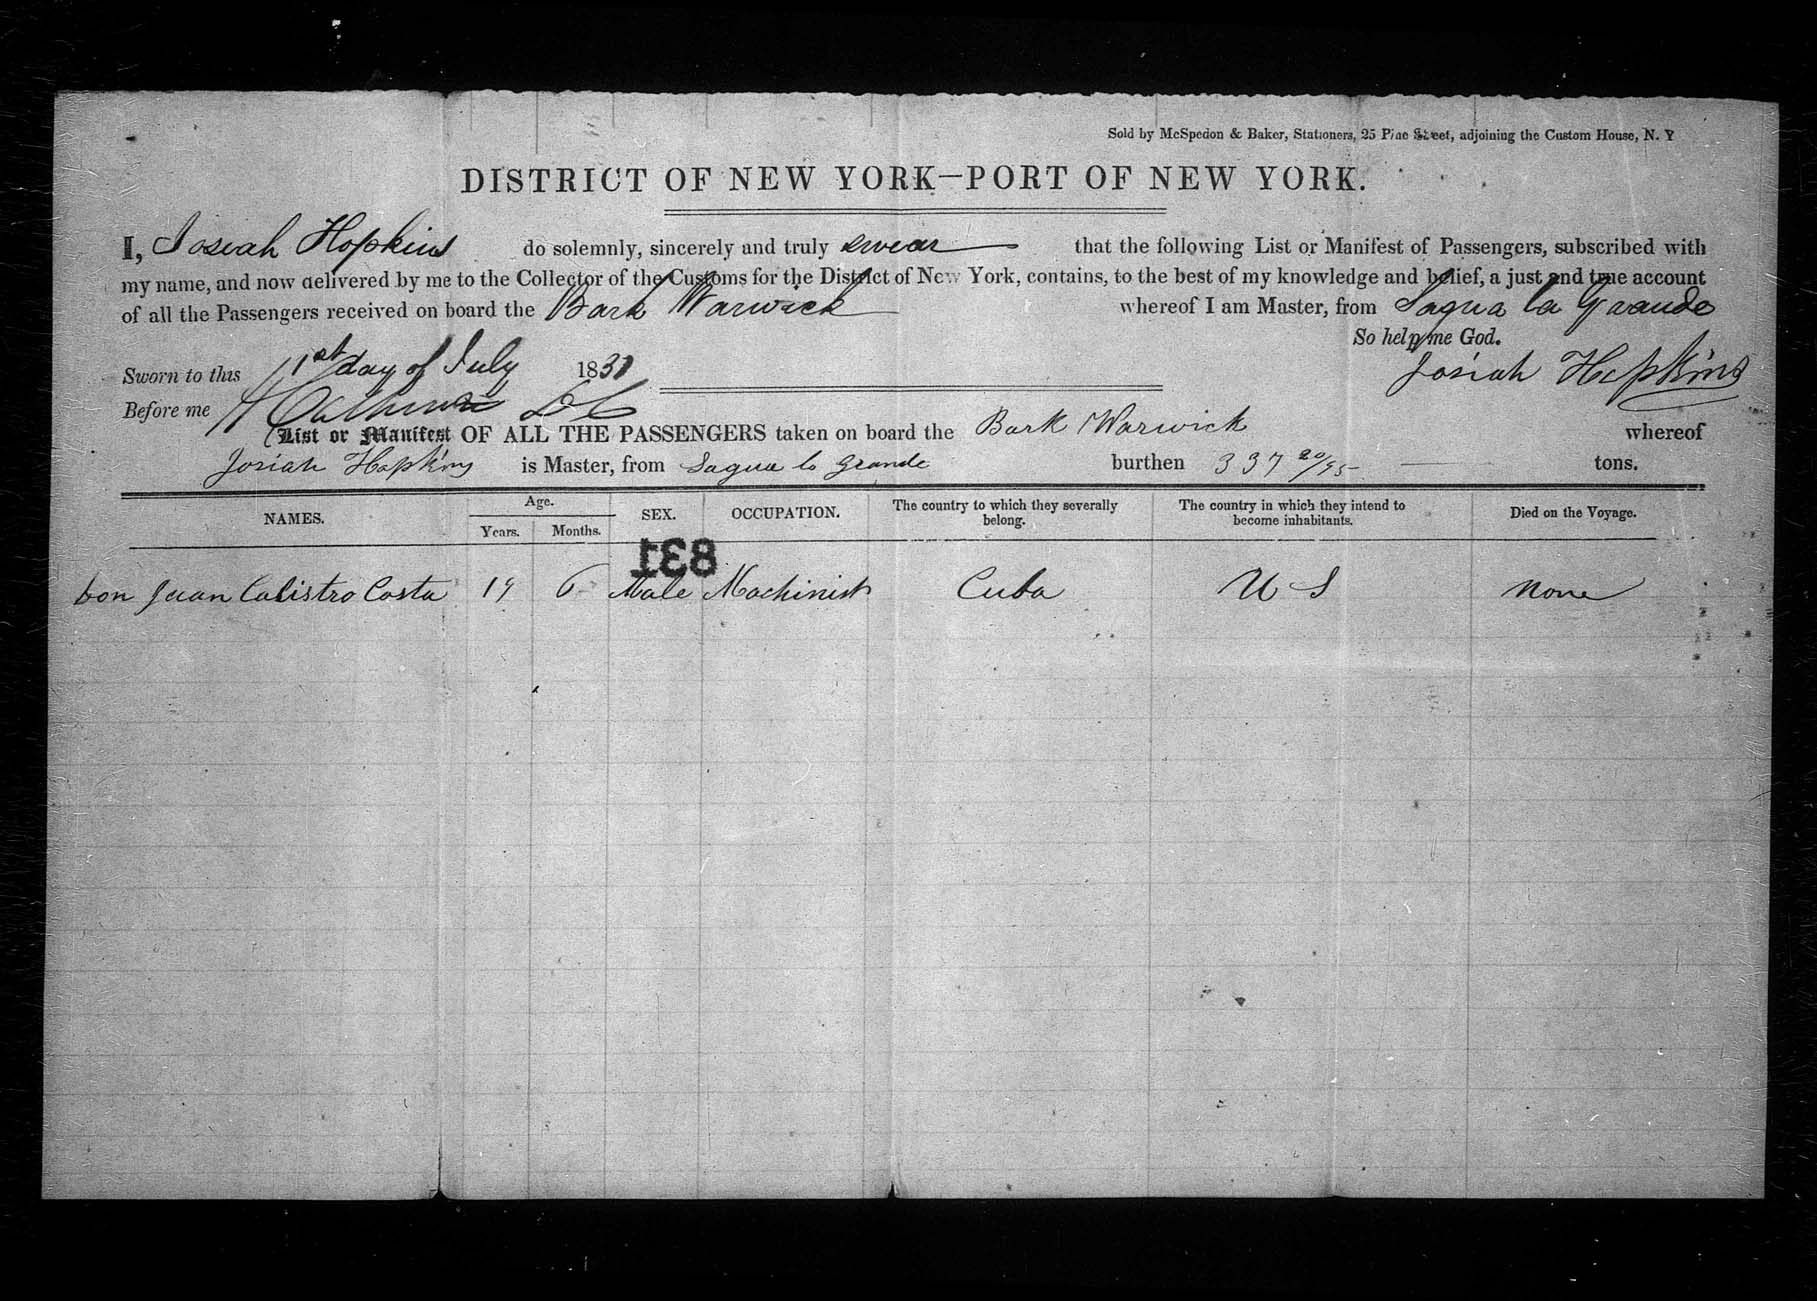 Sold by McSpedon & Baker, Stationers, 25 Pine Street, adjoining the Custom House, N. Y
DISTRICT OF NEW YORK—PORT OF NEW YORK.
I, Josiah Hopkins do solemnly, sincerely and truly swear that the following List or Manifest of Passengers, subscribed with
my name, and now delivered by me to the Collector of the Customs for the District of New York, contains, to the best of my knowledge and belief, a just and true account
of all the Passengers received on board the Bark Warwick whereof I am Master, from Sagua la Grande
So help me God.
Sworn to this 1st day of July 183 Josiah Hopkins
Before me
List or Manifest OF ALL THE PASSENGERS taken on board the Bark Warwick whereof
Josiah Hopkins is Master, from Sagua la Grande burthen 337 20/95 tons.
NAMES. Age. SEX. OCCUPATION. The country to which they severally belong. The country in which they intend to become inhabitants. Died on the Voyage.
Years. Months.
831
Don Juan Calistro Costa 19 6 Male Machinist Cuba U S None